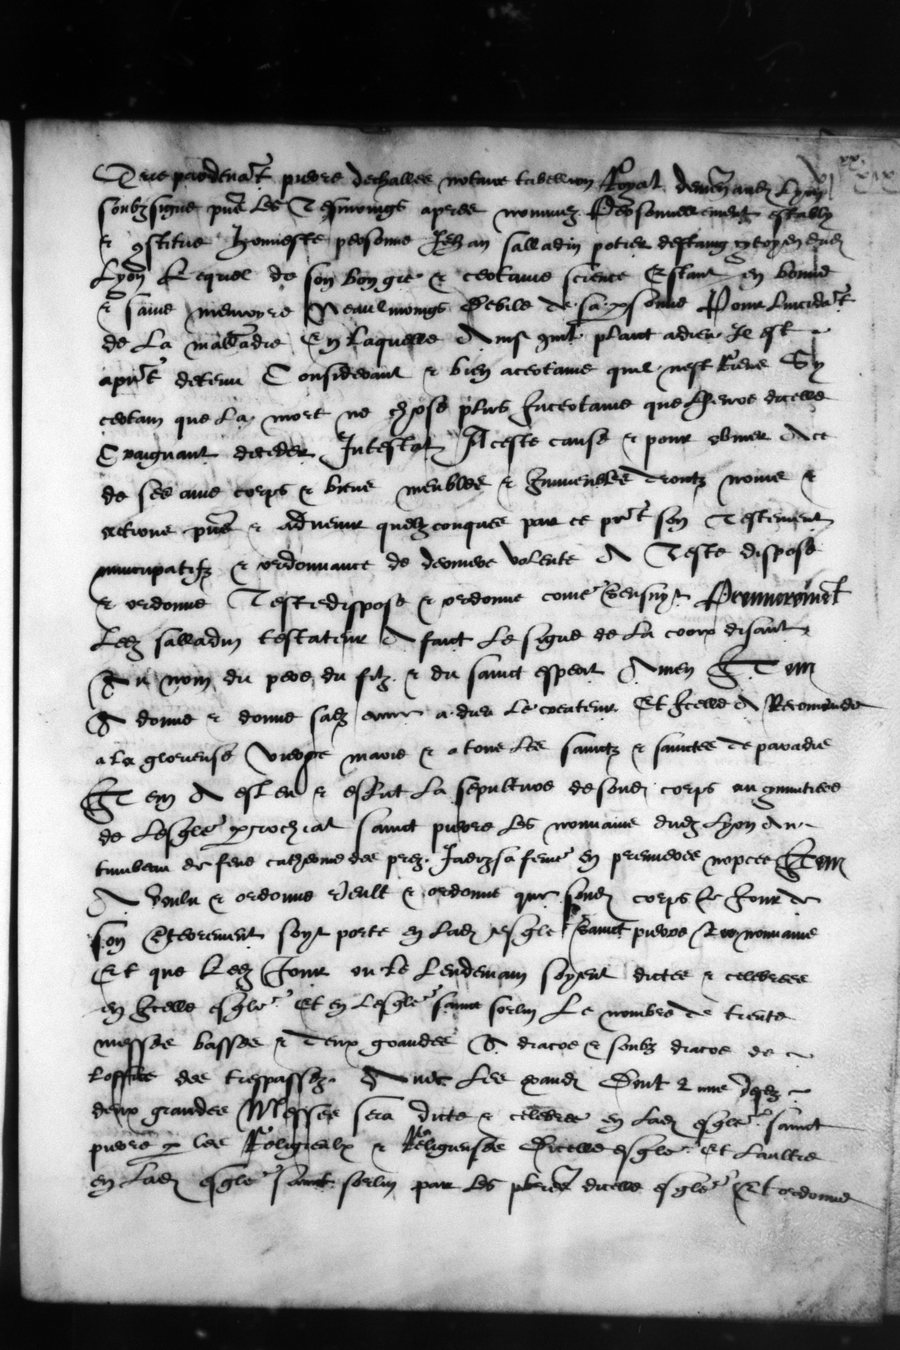 Que pardevant pierre dechalles notaire tabellion Royal demeurant Lyon
soubzsigne pnt les Tesmoings apres nommez personnellement estably
& constitue honneste personne Jehan salladin potier destaing cytoyen dud
Lyon Lequel de son bon gre & certaine science Estant en bonne
& saine memoyre Neaulmoings debile de sa personne Pour lincident
de La malladie En laquelle plaict a dieu Il est
apnt detenu Considerant & bien acertaine quil nest Riens Sy
certain que La mort ne chose plus Incertaine que Lheure dicelle
Craignant deceder Intestat A ceste cause & pour obvier A ce
de ses ame corps & biens meubles & Immeubles droictz noms &
actions pns & advenir quelzconques par ce pnt son Testement
nuncupatifz & ordonnance de derniere volente A Teste dispose
& ordonne Teste dispose & ordonne come sensuyt Premierement
Led salladin testateur A faict Le signe de La croix disant
Au nom du pere du filz & du sainct esperit Amen Item
A donne & donne sad ame a dieu Le createur Et Icelle A Recomande
a la glorieuse vierge marie & a tous Les sainctz & sainctes de paradis
Item A esleu & eslut La sepulture de sond corps au cymetiere
de Lesglise parrochial sainct pierre Les nonnains dud Lyon Au
tumbeau de feue catherine des prez Jadiz sa feme en premieres nopces Item
A voulu & ordonne veult & ordonne que sond corps Le Jour de
son Enterement soyt porte en Lad esglise sainct pierre Les nonnains
Et que Led Jour ou Le Lendemain soyent dictes & celebrees
en Icelle esglise Et en Lesglise sainct sorlin Le nombre de trente
messes basses & deux grandes A diacre & soubz diacre de
Loffice des trespassez Avec Les
deux grandes Messes sera dicte & celebree en Lad esglise sainct
pierre par Les Religieulx & Religieuses Dicelle esglise Et Laultre
en Lad esglise sainct sorlin par Les pbres dicelle esglise Et ordonne